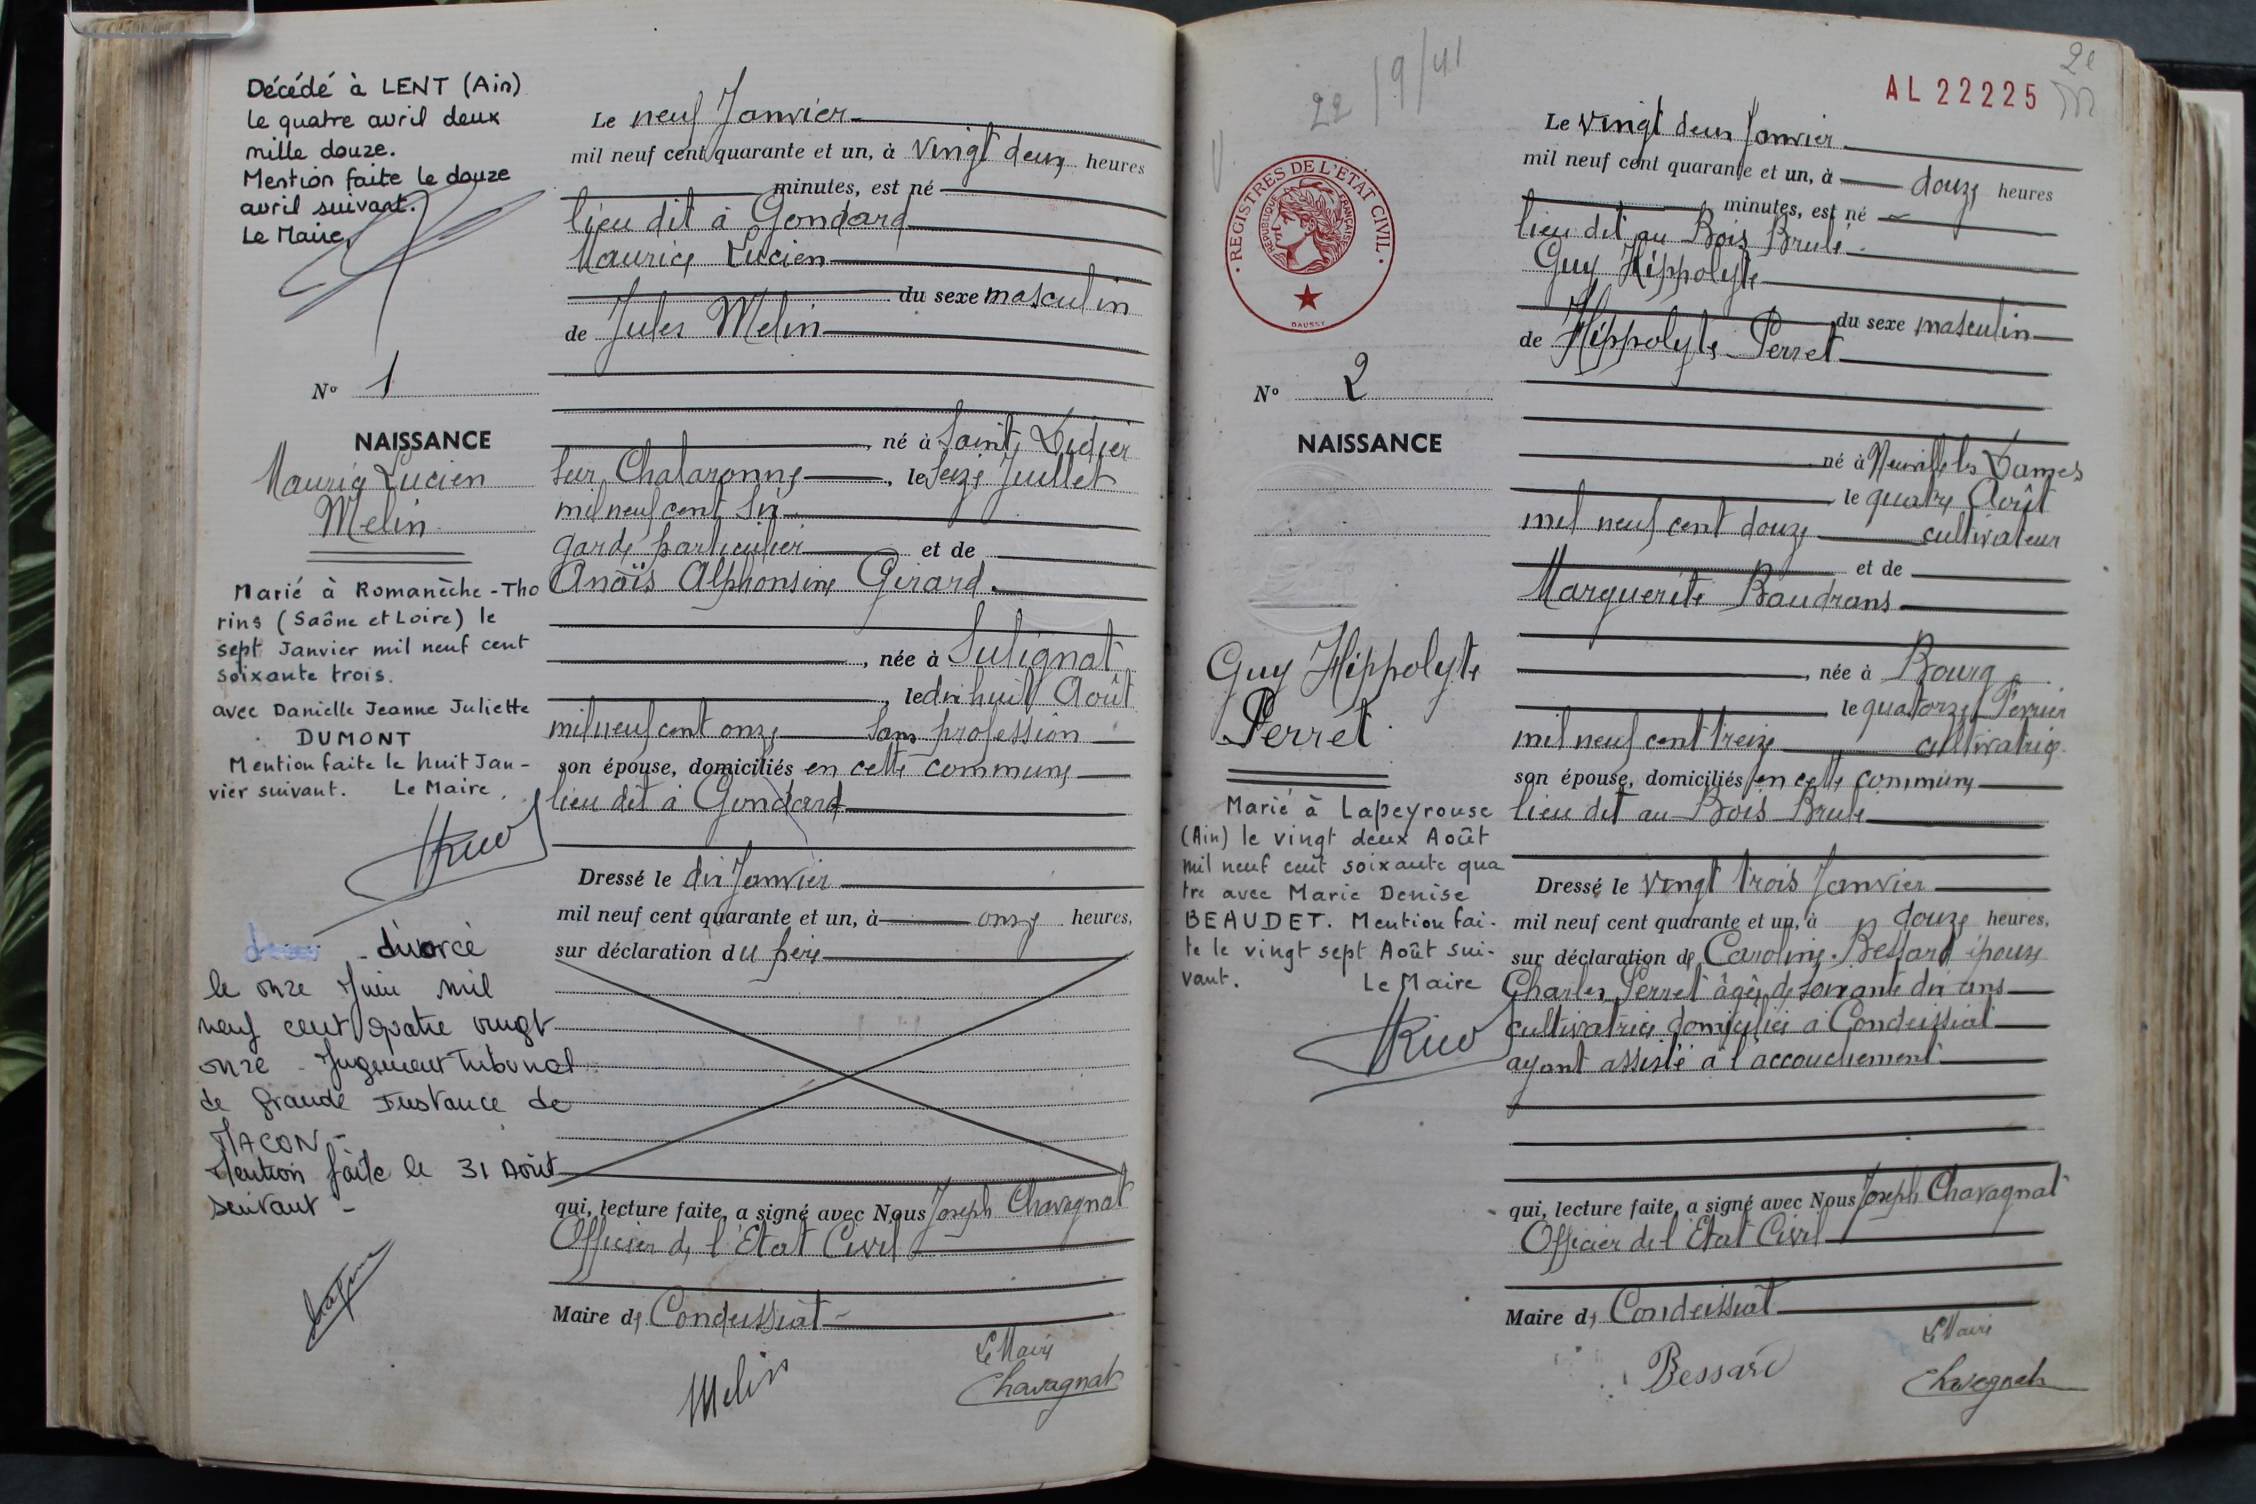 Décédé à LENT (Ain)
le quatre avril deux
mille douze.
Mention faite le douze
avril suivant.
Le Maire,
N° 1
NAISSANCE
Maurice Lucien
Melin
Marié à Romanèche-Tho
rins (Saône et Loire) le
sept Janvier mil neuf cent
soixante trois.
avec Danielle Jeanne Juliette
DUMONT
Mention faite le huit Jan-
vier suivant. Le Maire,
divorcé
le onze Juin mil
neuf cent quatre vingt
onze - Jugement Tribunal
de Grande Instance de
MACON -
Mention faite le 31 Août
suivant -
Le neuf Janvier
mil neuf cent quarante et un, à vingt deux heures
minutes, est né
lieu dit à Gondard
Maurice Lucien
du sexe masculin
de Jules Melin
, né à Saint Didier
sur Chalaronne, le seize Juillet
mil neuf cent six
garde particulier et de
Anaïs Alphonsine Girard.
, née à Sulignat
, le dix huit Août
mil neuf cent onze sans profession
son épouse, domiciliés en cette commune
lieu dit à Gondard
Dressé le dix Janvier
mil neuf cent quarante et un, à onze heures,
sur déclaration du père
qui, lecture faite, a signé avec Nous Joseph Chavagnat
Officier de l'Etat Civil
Maire de Condeissiat
Le Maire
Melin
Chavagnat
22/9/41
AL 22225
2e
REGISTRES DE L'ETAT CIVIL
REPUBLIQUE FRANÇAISE
DAUSSY
N° 2
NAISSANCE
Guy Hippolyte
Perret
Marié à Lapeyrouse
(Ain) le vingt deux Août
mil neuf cent soixante qua
tre avec Marie Denise
BEAUDET. Mention fai-
te le vingt sept Août sui-
vant. Le Maire
Le vingt deux Janvier
mil neuf cent quarante et un, à douze heures
minutes, est né
lieu dit au Bois Brulé
Guy Hippolyte
du sexe masculin
de Hippolyte Perret
né à Neuville les Dames
le quatre Août
mil neuf cent douze cultivateur
et de
Marguerite Baudrans
, née à Bourg
le quatorze Février
mil neuf cent treize cultivatrice
son épouse, domiciliés en cette commune
lieu dit au Bois Brulé
Dressé le vingt trois Janvier
mil neuf cent quarante et un, à douze heures,
sur déclaration de Caroline Bessard épouse
Charles Perret âgée de soixante dix ans
cultivatrice domiciliée à Condeissiat
ayant assisté à l'accouchement
qui, lecture faite, a signé avec Nous Joseph Chavagnat
Officier de l'Etat Civil
Maire de Condeissiat
Le Maire
Bessard
Chavagnat